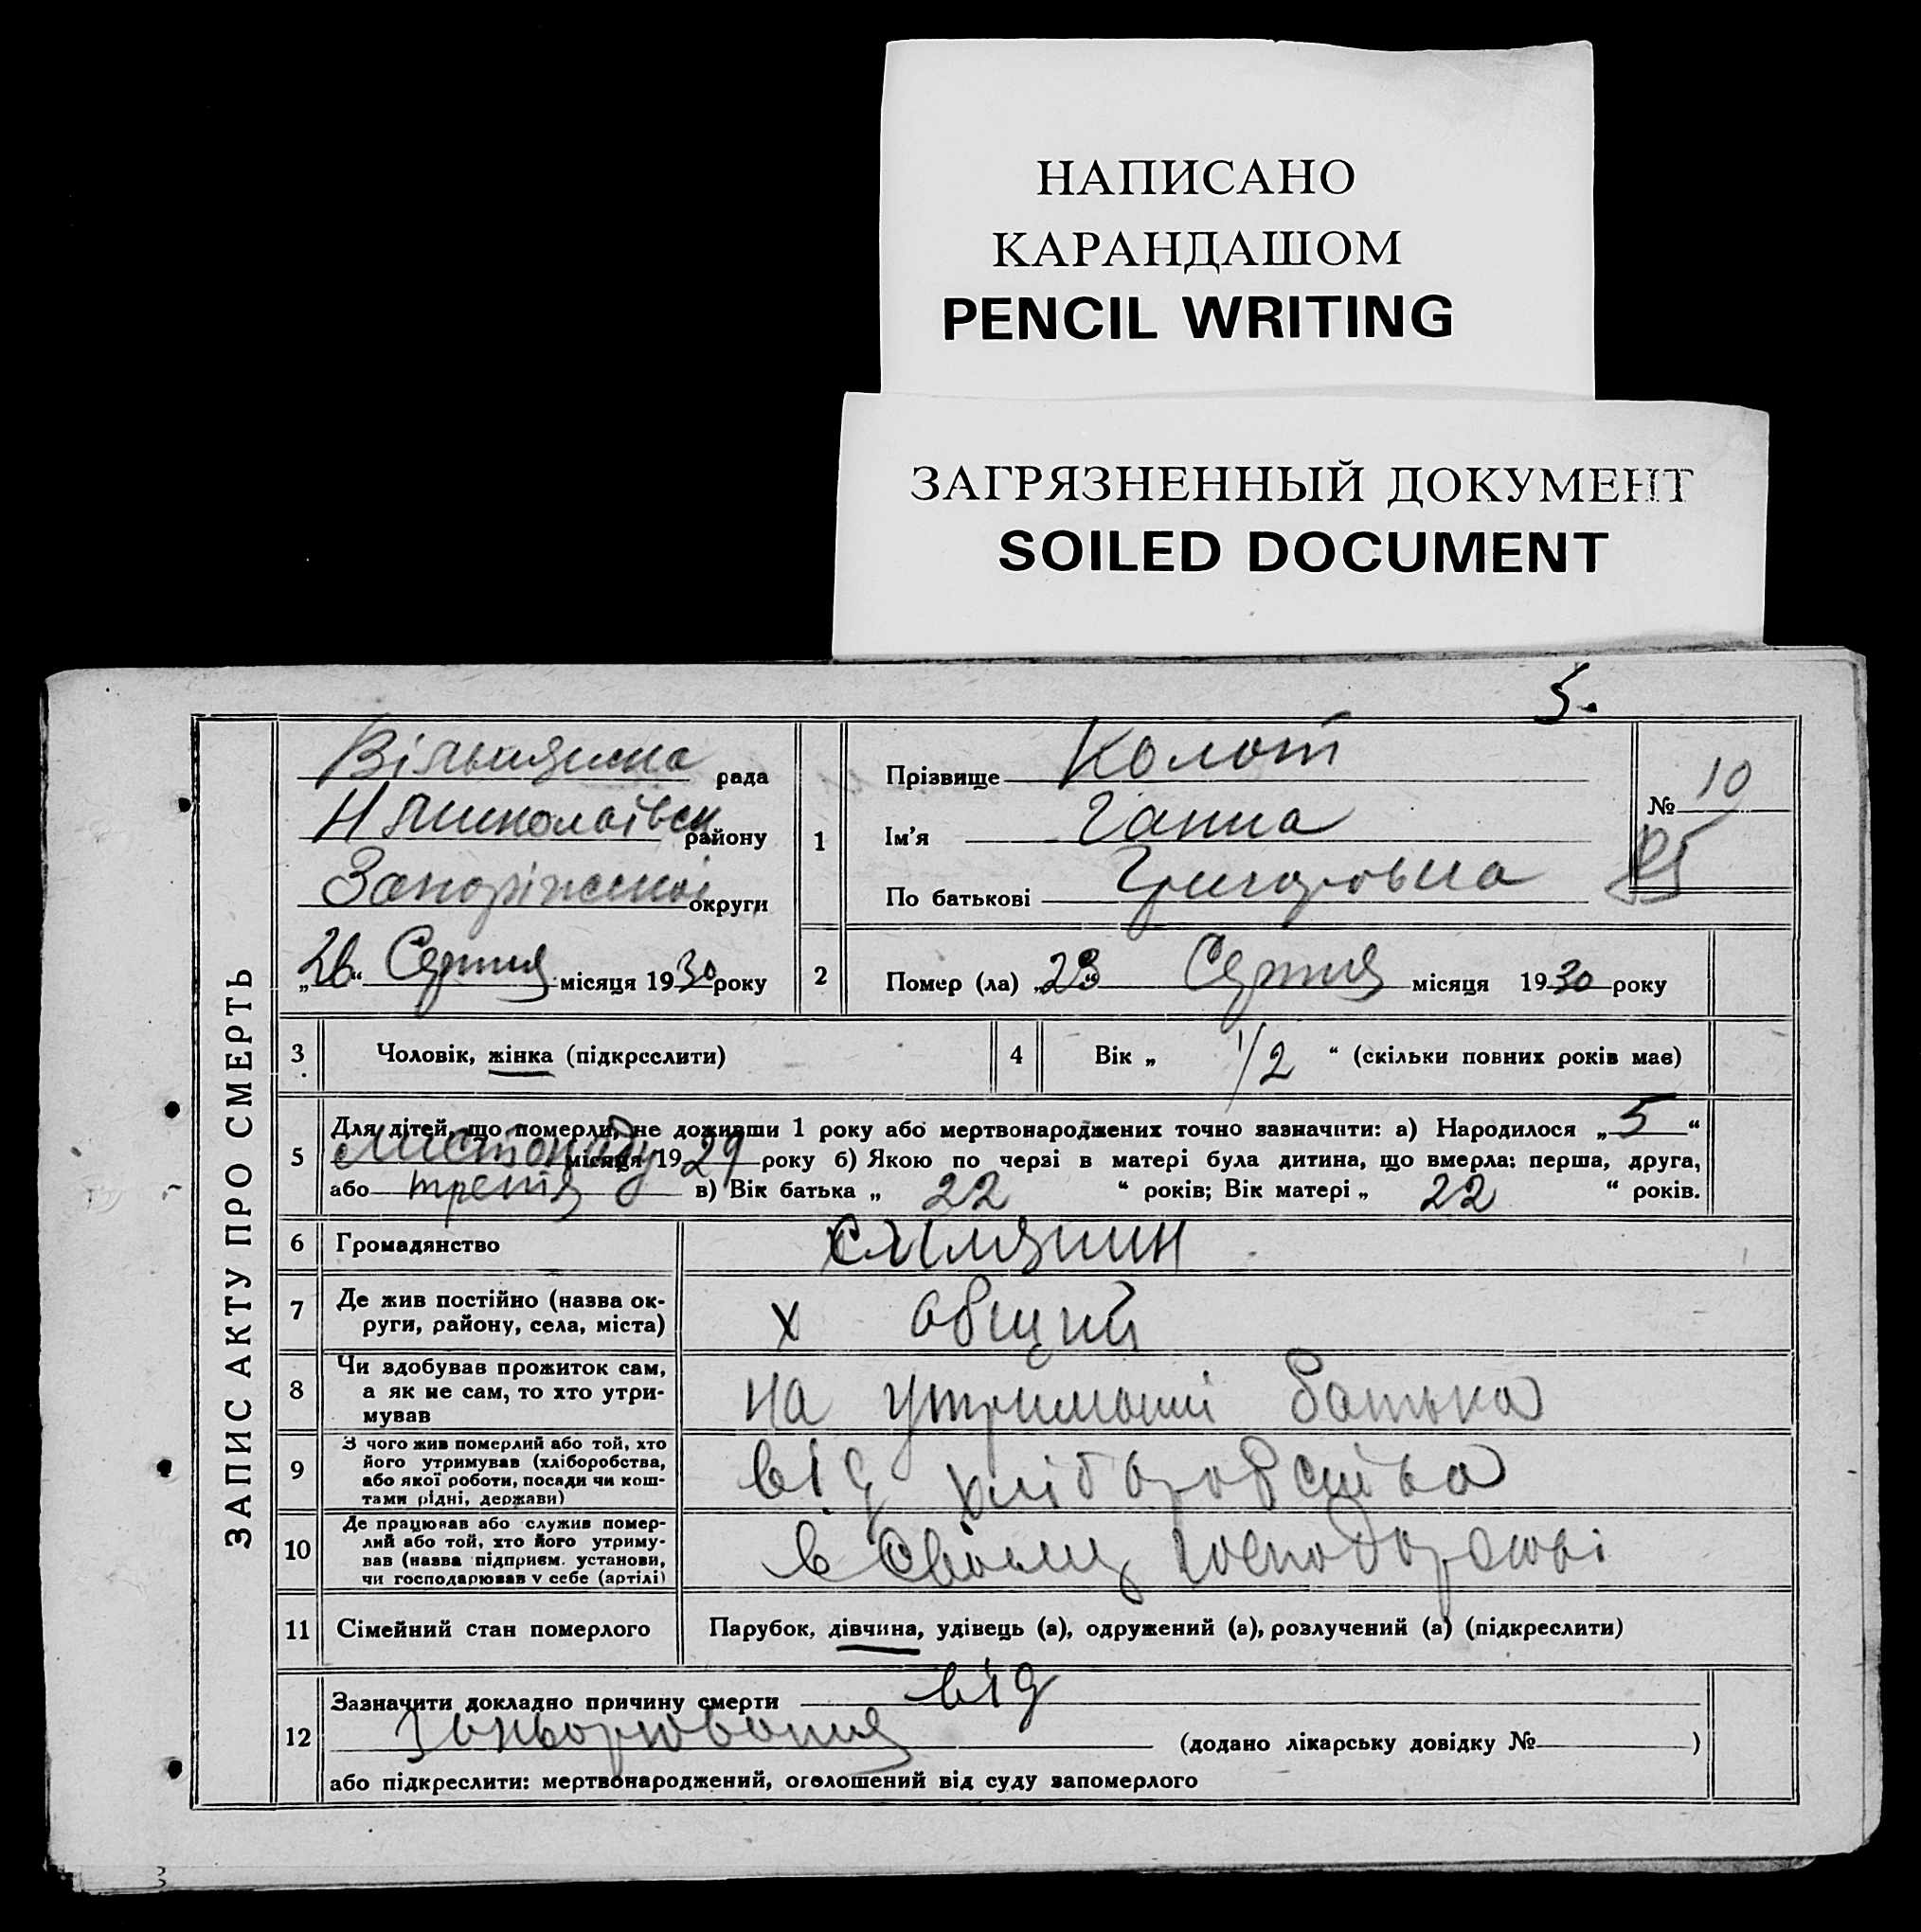 НАПИСАНО
КАРАНДАШОМ
PENCIL WRITING
ЗАГРЯЗНЕННЫЙ ДОКУМЕНТ
SOILED DOCUMENT
5.
ЗАПИС АКТУ ПРО СМЕРТЬ
рада
району
округи
„26“ Серпня місяця 1930 року
1
Прізвище Колот
Ім'я Ганна
По батькові Григоровна
№ 10
85
2 Помер (ла) „23“ Серпня місяця 1930 року
3 Чоловік, жінка (підкреслити)
4 Вік „ 1/2 “ (скільки повних років мав)
5 Для дітей, що померли, не доживши 1 року або мертвонароджених точно зазначити: а) Народилося „5“
Листопаду місяця 1929 року б) Якою по черзі в матері була дитина, що вмерла: перша, друга,
або третя в) Вік батька „ 22 “ років; Вік матері „ 22 “ років.
6 Громадянство
7 Де жив постійно (назва ок-
руги, району, села, міста)
х Общий
8 Чи здобував прожиток сам,
а як не сам, то хто утри-
мував
на утриманні батька
9 З чого жив померлий або той, хто
його утримував (хліборобства,
або якої роботи, посади чи кош-
тами рідні, держави)
від хліборобства
10 Де працював або служив помер-
лий або той, хто його утриму-
вав (назва підприєм. установи,
чи господарював у себе (артілі)
в своему господарстві
11 Сімейний стан померлого Парубок, дівчина, удівець (а), одружений (а), розлучений (а) (підкреслити)
12 Зазначити докладно причину смерти від
(додано лікарську довідку № )
або підкреслити: мертвонароджений, оголошений від суду запомерлого